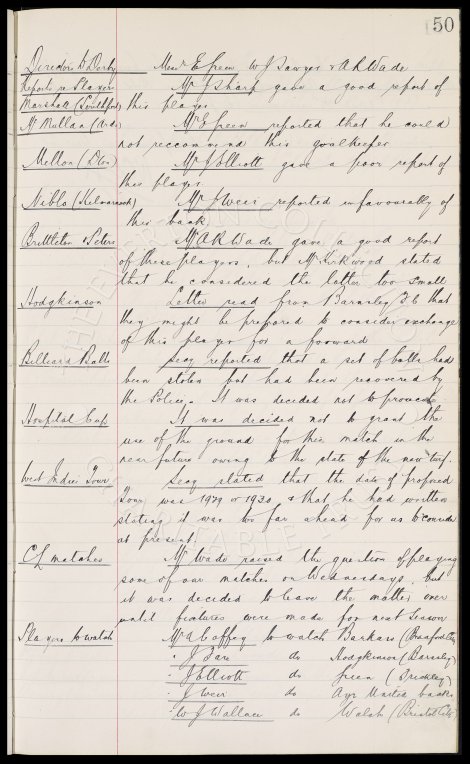 50
Director to Derby Messrs E Green W J Sawyer & A H Wade
Reports re Players Mr J Sharp gave a good report of
Marshall (Southport) this player
McMullan (Ards) Mr E Green reported that he could
not reccommend this goalkeeper
Mellon (Don) Mr J Elliott gave a poor report of
this player
Niblo (Kilmarnock) Mr J Weir reported unfavourably of
this back
Brittleton & Peters Mr A H Wade gave a good report
of these players, but Mr Kirkwood stated
that he considered the latter too small
Hodgkinson Letter read from Barnsley F.C that
they might be prepared to consider exchange
of this player for a forward
Billiard Balls Secy reported that a set of balls had
been stolen but had been recovered by
the Police. It was decided not to prosecute
Hospital Cup It was decided not to grant the
use of the ground for this match in the
near future owing to the state of the new turf.
West Indies Tour Secy stated that the date of proposed
Tour was 1929 or 1930, & that he had written
stating it was too far ahead for us to consider
at present.
CL matches Mr Wade raised the question of playing
some of our matches on Wednesdays, but
it was decided to leave the matter over
until fixtures were made for next season
Players to watch Mr A Coffey to watch Barkas (Bradford City)
" J do Hodgkinson (Barnsley)
" J Elliott do Green (Brierley)
" J Weir do Ayr United backs
" W J Wallace do Walsh (Bristol City)